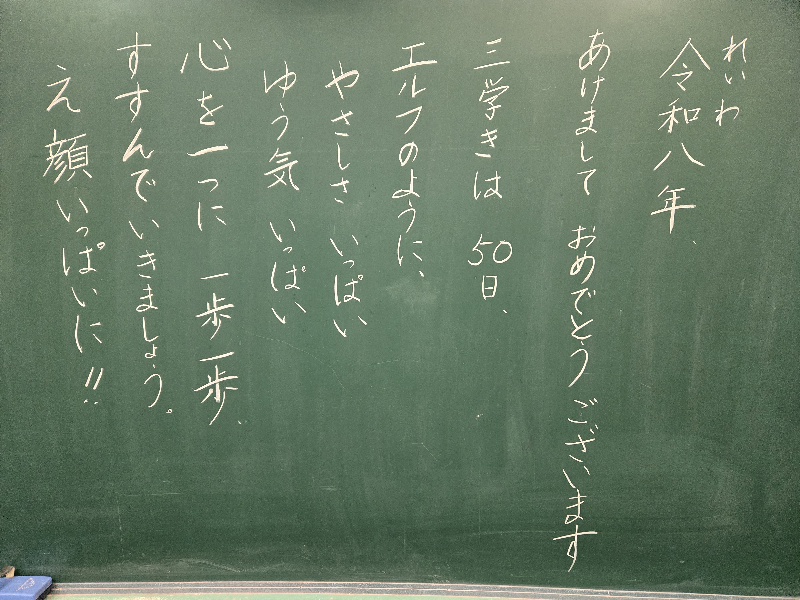 れいわ
令和八年、
あけまして おめでとう ございます
三学きは 50日、
エルフのように、
やさしさ いっぱい
ゆう気 いっぱい
心を一つに 一歩一歩、
すすんでいきましょう。
え顔いっぱいに!!